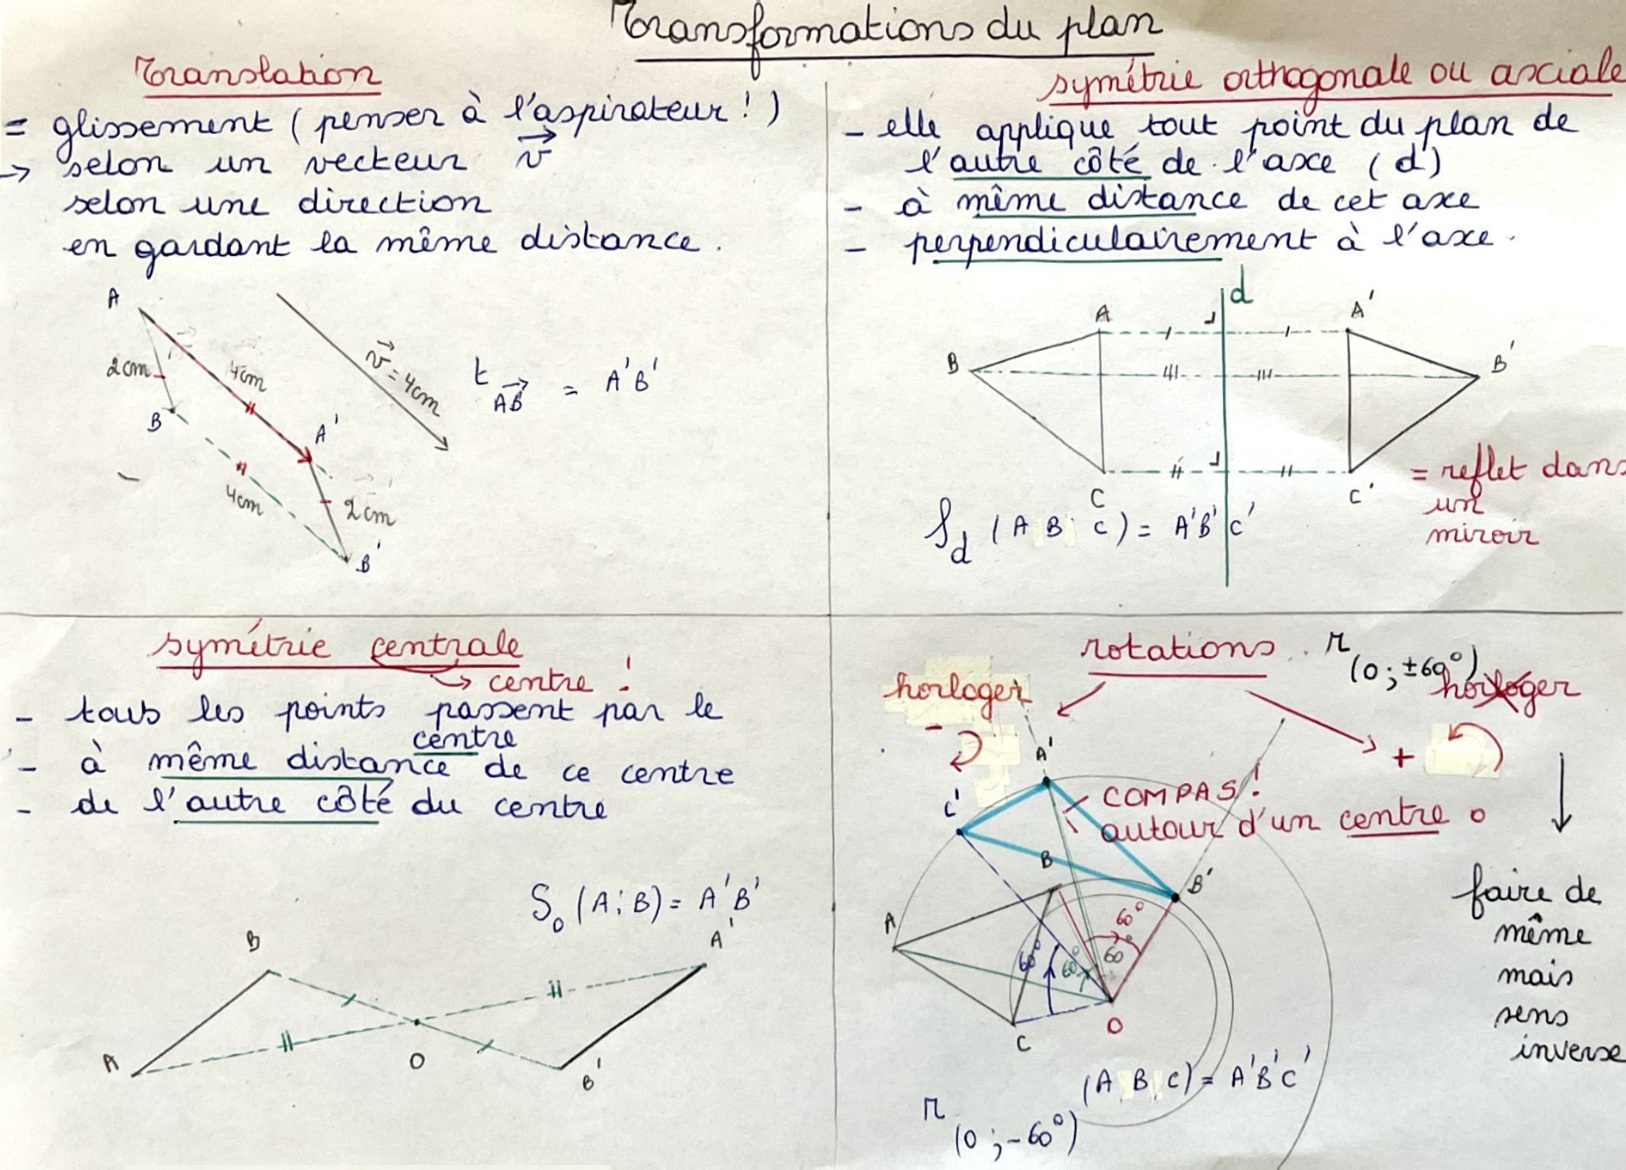 Transformations du plan
Translation
= glissement (penser à l'aspirateur !)
→ selon un vecteur v
selon une direction
en gardant la même distance.
A
2cm
B
4cm
A'
4cm
2cm
B'
v = 4cm
t AB = A'B'
symétrie orthogonale ou axciale
- elle applique tout point du plan de
l'autre côté de l'axe (d)
- à même distance de cet axe
- perpendiculairement à l'axe.
d
A
A'
B
B'
C
C'
= reflet dans
un
miroir
S d (A B C) = A'B'C'
symétrie centrale
→ centre !
- tous les points passent par le
centre
- à même distance de ce centre
- de l'autre côté du centre
S o (A; B) = A'B'
B
A'
A
O
B'
rotations. r (0; ±60°)
horloger
-
horloger
+
A'
C'
COMPAS !
autour d'un centre o
B
B'
A
60°
60°
60°
60°
O
C
faire de
même
mais
sens
inverse
r (0; -60°) (A B C) = A'B'C'